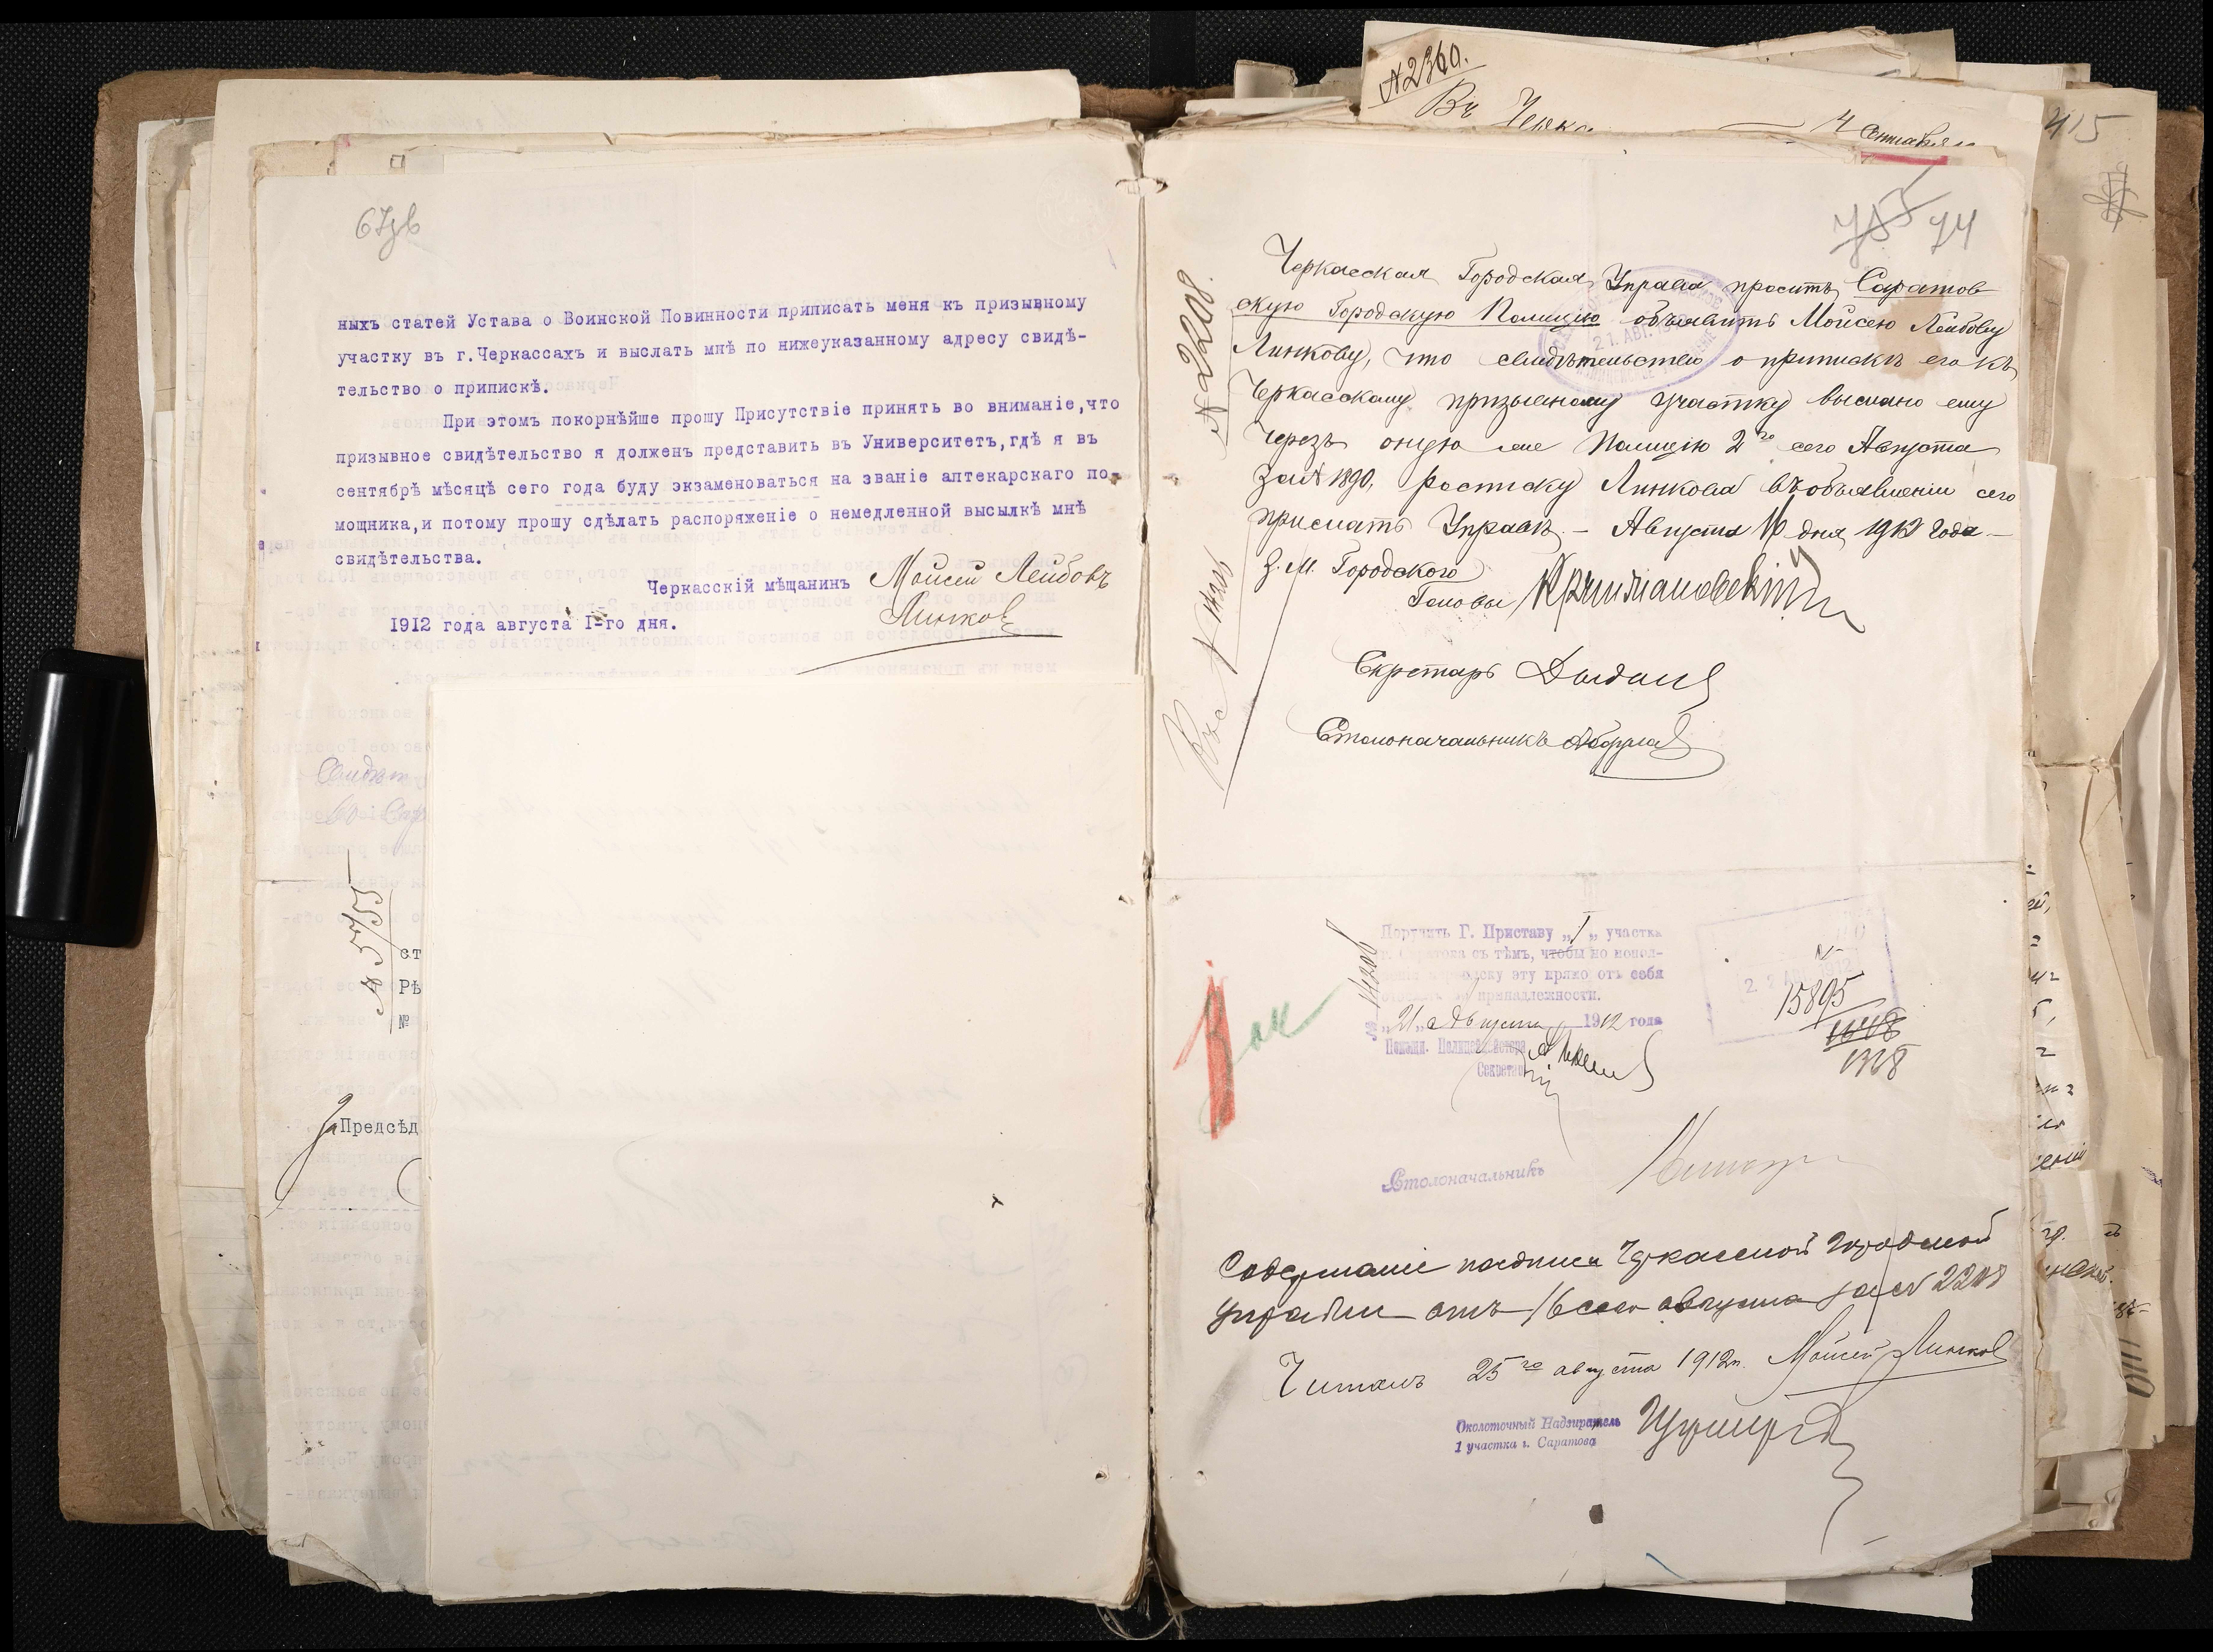 67об
ныхъ статей Устава о Воинской Повинности приписать меня къ призывному
участку въ г.Черкассахъ и выслать мнѣ по нижеуказанному адресу свидѣ-
тельство о припискѣ.
При этомъ покорнѣйше прошу Присутствіе принять во вниманіе,что
призывное свидѣтельство я долженъ представить въ Университетъ,гдѣ я въ
сентябрѣ мѣсяцѣ сего года буду экзаменоваться на званіе аптекарскаго по-
мощника,и потому прошу сдѣлать распоряженіе о немедленной высылкѣ мнѣ
свидѣтельства.
Черкасскій мѣщанинъ Моисей Лейбовъ
Линковъ
1912 года августа I-го дня.
ст
Рѣ
№
За Предсѣд
№ 2360.
Въ Черка
4 Сентября
415
74
№ 2208.
Черкасская Городская Управа проситъ Саратов
скую Городскую Полицію объявить Мойсею Лейбову
Линкову, что свидѣтельство о припискѣ его къ
Черкасскому призывному участку выслано ему
черезъ оную же Полицію 2го сего Августа
за № 1890, росписку Линкова въ объявленіи сего
прислать Управѣ. – Августа 16 дня 1912 года –
З. М. Городского
Головы
Секретарь
Столоначальникъ
21. АВГ. 1912
Поручить Г. Приставу „1„ участка
г. Саратова съ тѣмъ, чтобы по испол-
неніи переписку эту прямо отъ себя
по принадлежности.
„21„ Августа 1912 года
Помощн. Полицеймейстера
Секретарь
22 АВГ. 1912
15895
1328
Столоначальникъ
Содержаніе надписи Черкасской Городской
Управы отъ 16 сего августа за № 2208
Читалъ 25го августа 1912г. Мойсей Линковъ
Околоточный Надзиратель
1 участка г. Саратова